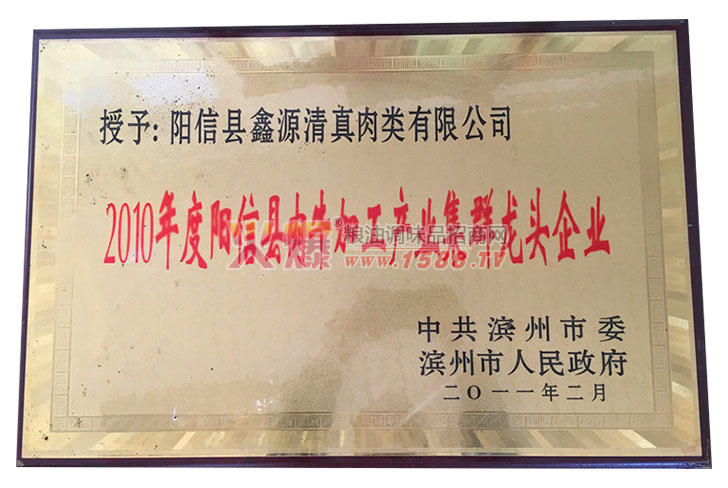 授予:阳信县鑫源清真肉类有限公司
2010年度阳信县肉牛加工产业集群龙头企业
火爆®粮油调味品招商网
www.1588.TV
中共滨州市委
滨州市人民政府
二〇一一年二月